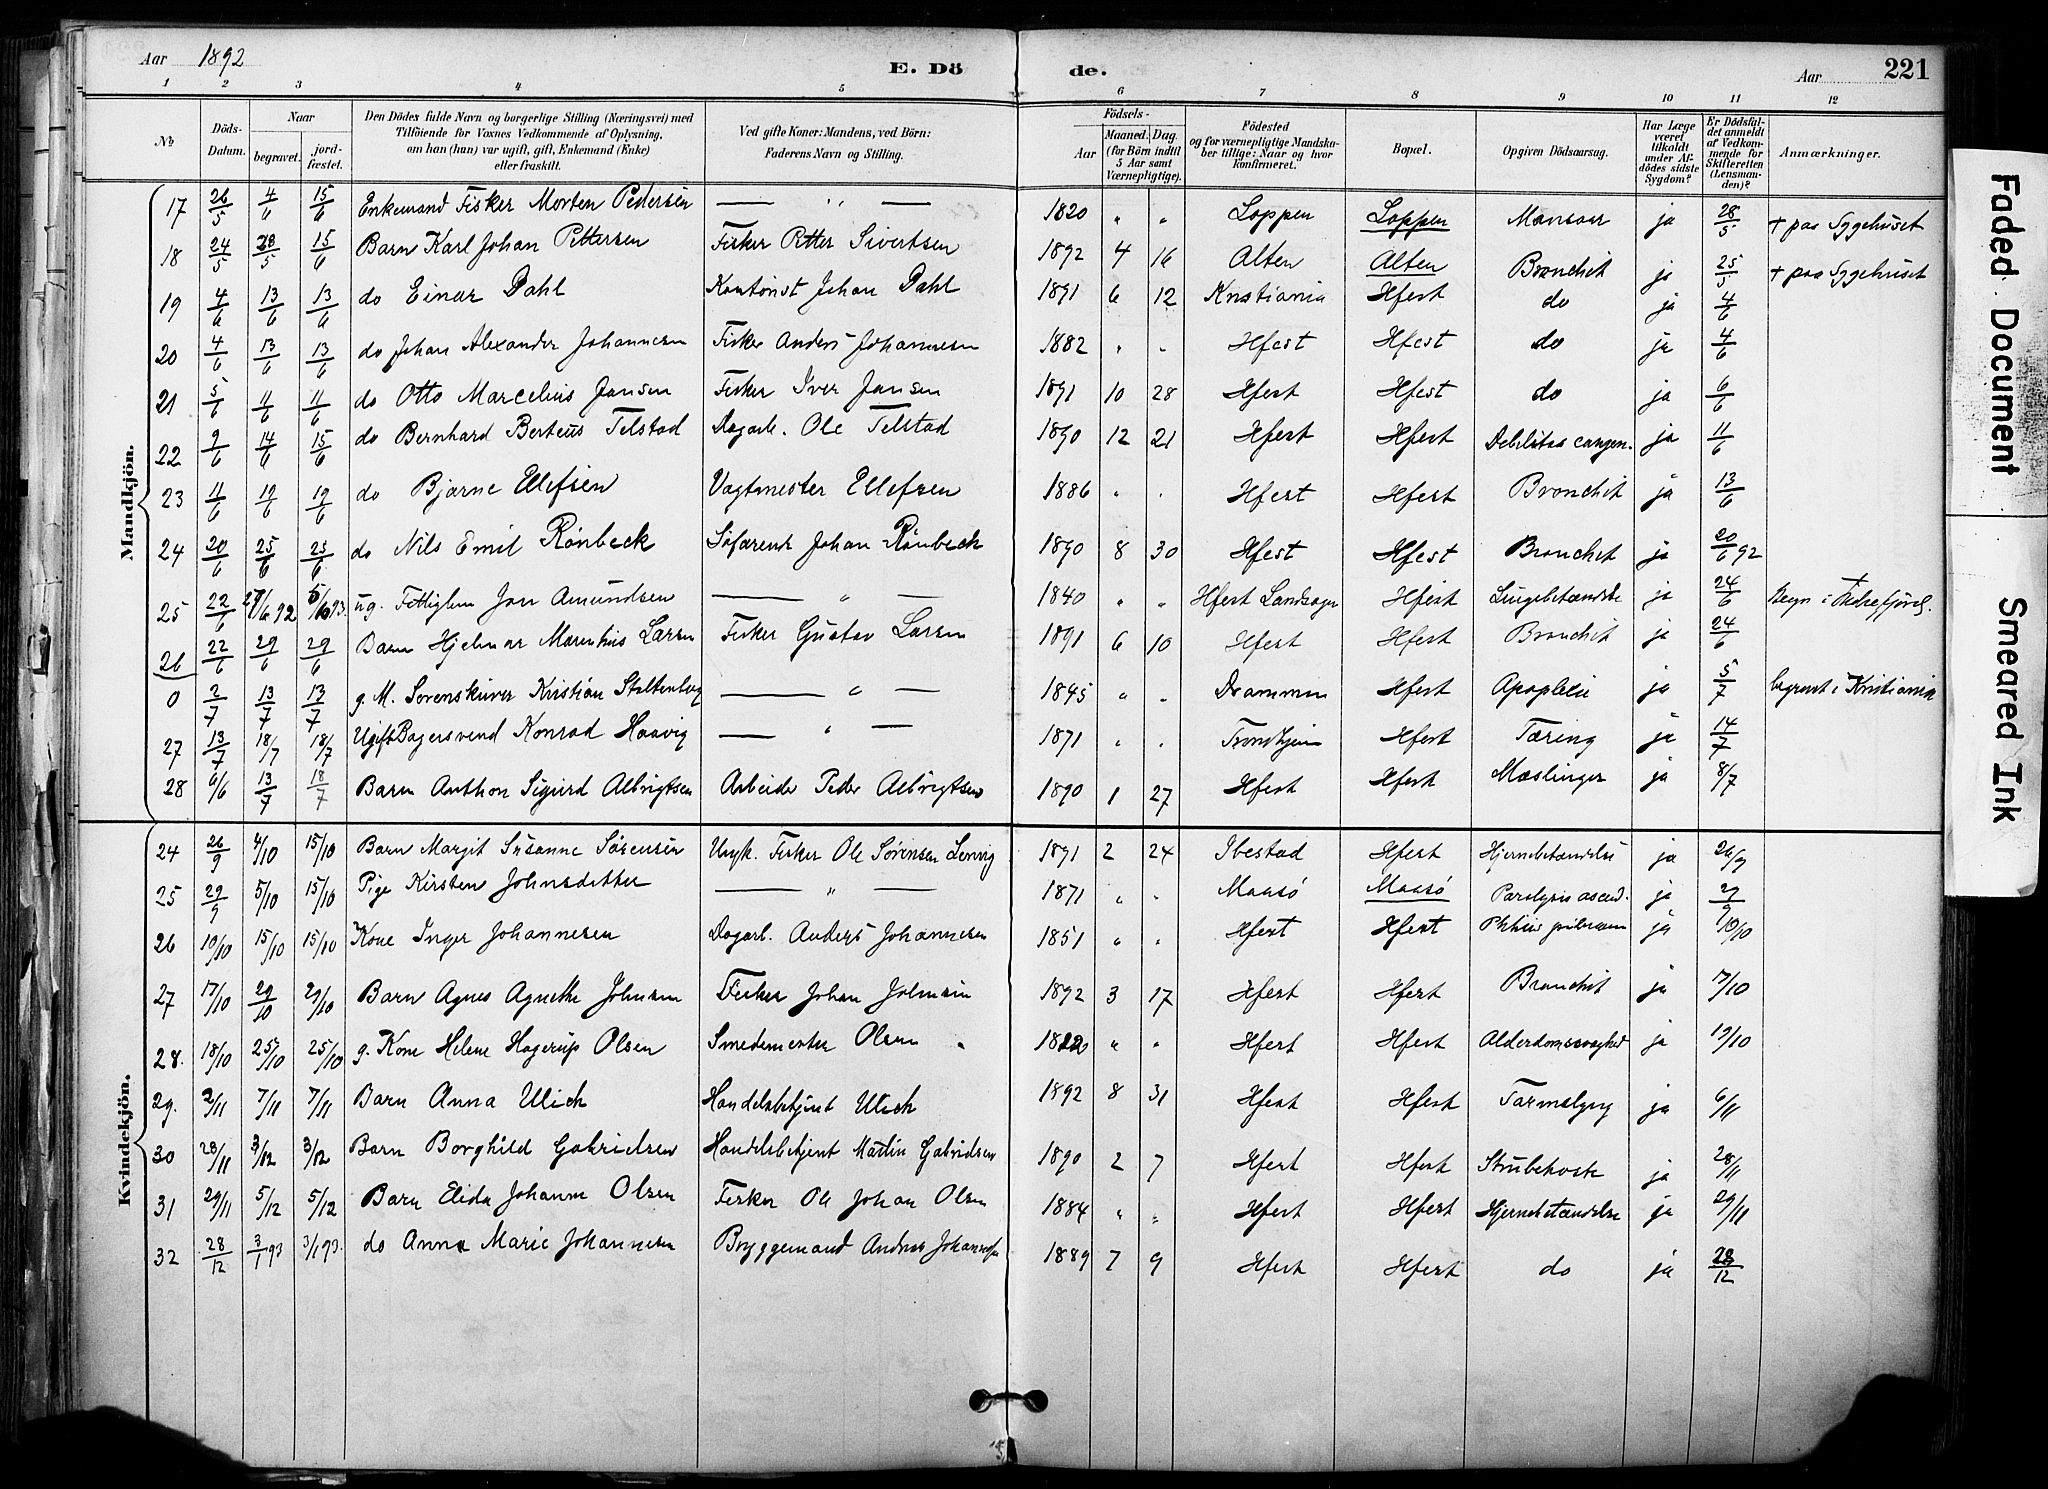 Aar 1892
E. Dö de.
Aar 221
1 2 3 4 5 6 7 8 9 10 11 12
№
Döds-Datum.
Naar begravet. jordfæstet.
Den Dödes fulde Navn og borgerlige Stilling (Næringsvei) med Tilföiende for Voxnes Vedkommende af Oplysning, om han (hun) var ugift, gift, Enkemand (Enke) eller fraskilt.
Ved gifte Koner: Mandens, ved Börn: Faderens Navn og Stilling.
Födsels- Aar Maaned. Dag. (for Börn indtil 5 Aar samt Værnepligtige).
Födested og for værnepligtige Mandskaber tillige: Naar og hvor konfirmeret.
Bopæl.
Opgiven Dödsaarsag.
Har Læge været tilkaldt under Afdödes sidste Sygdom?
Er Dödsfaldet anmeldt af Vedkommende for Skifteretten (Lensmanden)?
Anmærkninger.
Mandkjön.
17 26/5 4/6 15/6 Enkemand Fisker Morten Pedersen — " — 1820 " " Loppen Loppen ja 28/5 + paa Sygehuset
18 24/5 28/5 15/6 Barn Karl Johan Pettersen Fisker Petter Sivertsen 1892 4 16 Alten Alten Bronchit ja 25/5 + paa Sygehuset
19 4/6 13/6 13/6 do Einar Dahl Kontorist Johan Dahl 1891 6 12 Kristiania Hfest do ja 4/6
20 4/6 13/6 13/6 do Johan Alexander Johannesen Fisker Anders Johannesen 1882 " " Hfest Hfest do ja 4/6
21 5/6 11/6 11/6 do Otto Marcelius Jansen Fisker Iver Jansen 1891 10 28 Hfest Hfest do ja 6/6
22 9/6 14/6 15/6 do Bernhard Berteus Telstad Dagarb. Ole Telstad 1890 12 21 Hfest Hfest Debilitas congen. ja 11/6
23 11/6 19/6 19/6 do Bjarne Ellefsen Vagtmester Ellefsen 1886 " " Hfest Hfest Bronchit ja 13/6
24 20/6 25/6 25/6 do Nils Emil Rönbeck Söfarende Johan Rönbeck 1890 8 30 Hfest Hfest Bronchit ja 20/6 92
25 22/6 27/6 92 ug. Fattiglem Jon Amundsen — " — 1840 " " Hfest Landsogn Hfest Lungebetændelse ja 24/6
26 22/6 29/6 29/6 Barn Hjelmar Marenhus Larsen Fisker Gustav Larsen 1891 6 10 Hfest Hfest Bronchit ja 24/6
0 2/7 13/7 13/7 g. M. Sorenskriver Kristian Stoltenberg — " — 1845 " " Drammen Hfest Apoplexie ja 5/7 begravet i Kristiania
27 13/7 18/7 18/7 Ugift Bagersvend Konrad Haavig — " — 1871 " " Trondhjem Hfest Tæring ja 14/7
28 6/6 13/7 18/7 Barn Anthon Sigurd Albrigtsen Arbeider Peder Albrigtsen 1890 1 27 Hfest Hfest Mæslinger ja 8/7
Kvindekjön.
24 26/9 4/10 15/10 Barn Margit Susanne Sörensen Ungk. Fisker Ole Sörensen Lenvig 1891 2 24 Ibestad Hfest Hjernebetændelse ja 26/9
25 29/9 5/10 15/10 Pige Kirsten Johnsdatter — " — 1871 " " Maasö Maasö Paralysis ascend. ja 29/9
26 10/10 15/10 15/10 Kone Inger Johannesen Dagarb. Anders Johannesen 1851 " " Hfest Hfest ja 10/10
27 17/10 29/10 29/10 Barn Agnes Agnethe Johnsen Fisker Johan Johnsen 1892 3 17 Hfest Hfest Bronchit ja 17/10
28. 18/10 25/10 25/10 g. Kone Helene Hagerup Olsen Smedemester Olsen " " " Hfest Hfest Alderdomssvaghed ja 19/10
29. 2/11 7/11 7/11 Barn Anna Ulich Handelsbetjent Ulich 1892 8 31 Hfest Hfest Tarmslyng ja 6/11
30 28/11 3/12 3/12 Barn Borghild Gabrielsen Handelsbetjent Martin Gabrielsen 1890 2 7 Hfest Hfest Strubehoste ja 28/11
31 29/11 5/12 5/12 Barn Elida Johanne Olsen Fisker Ole Johan Olsen 1884 " " Hfest Hfest Hjernebetændelse ja 29/11
32 28/12 3/1 93 3/1 93. do Anna Marie Johannesen Bryggemand Andreas Johannesen 1889 7 9 Hfest Hfest do ja 28/12
Faded Document
Smeared Ink